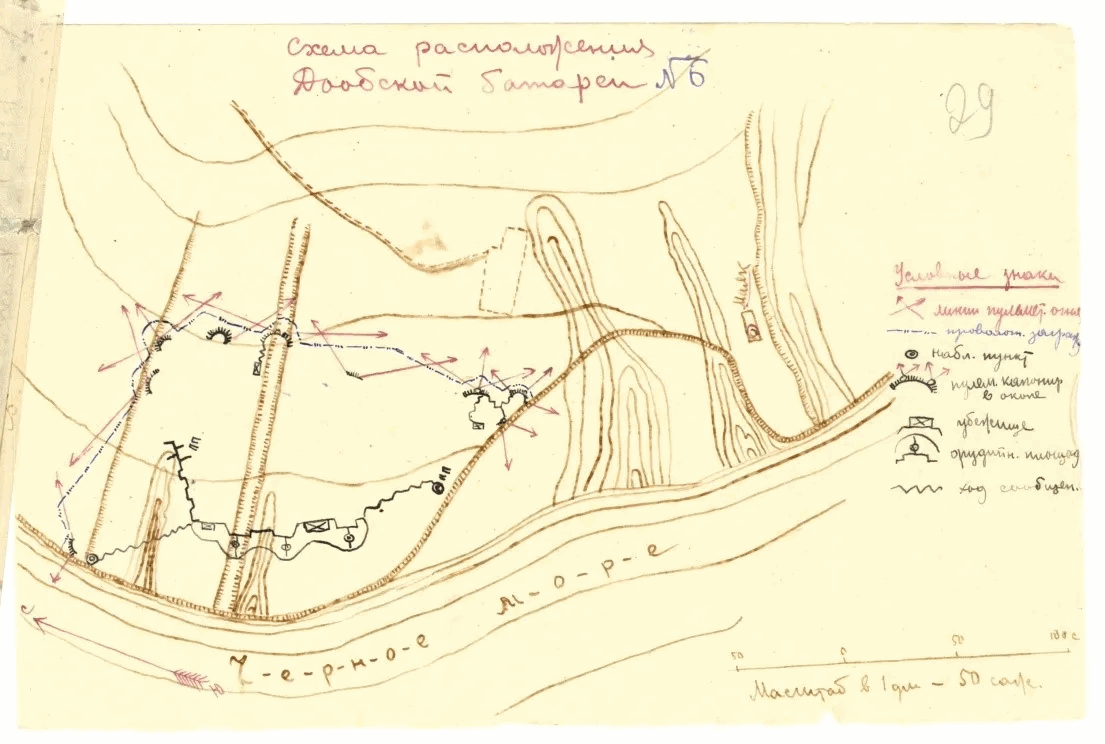 Схема расположения
Дообской батареи №6
29
Маяк
Условные знаки
линии пулемет. огня
проволоч. заграж
набл. пункт
пулем. капонир
в окопе
убежище
орудийн. площад
ход сообщен.
ПП
КП
Черное море
С
Ю
50 0 50 100 с
Масштаб в 1 дм – 50 саж.